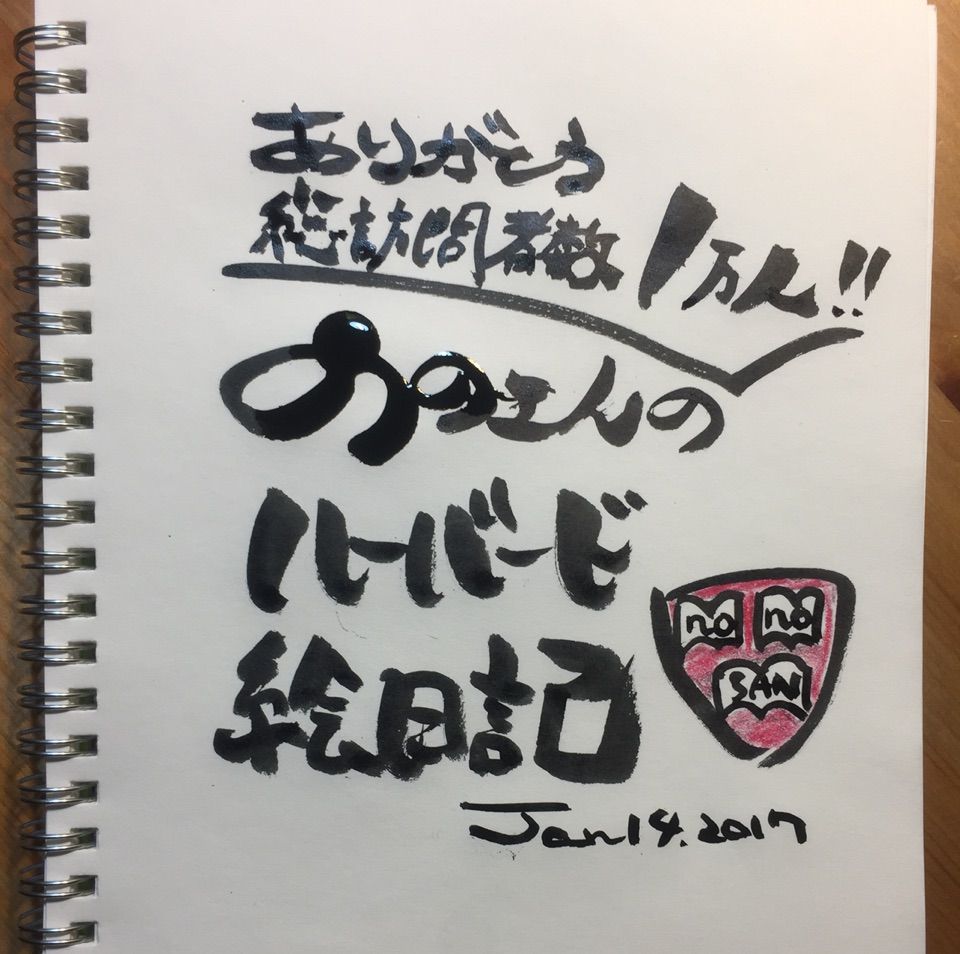 ありがとう
総訪問者数 1万人!!
ののさんの
ハーバード
絵日記
no no
SAN
Jan 14. 2017